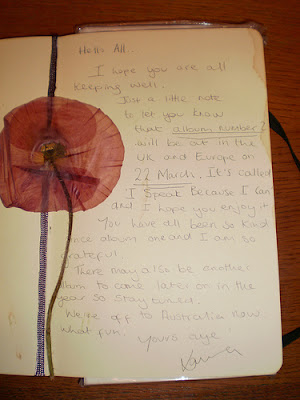 Hello All..
I hope you are all
keeping well.
Just a little note
to let you know
that album number 2
will be out in the
UK and Europe on
22 March. It's called
I Speak Because I Can
and I hope you enjoy it
You have all been so kind
since album one and I am so
grateful.
There may also be another
album to come later on in the
year so stay tuned.
We're off to Australia now.
What fun.
Yours aye